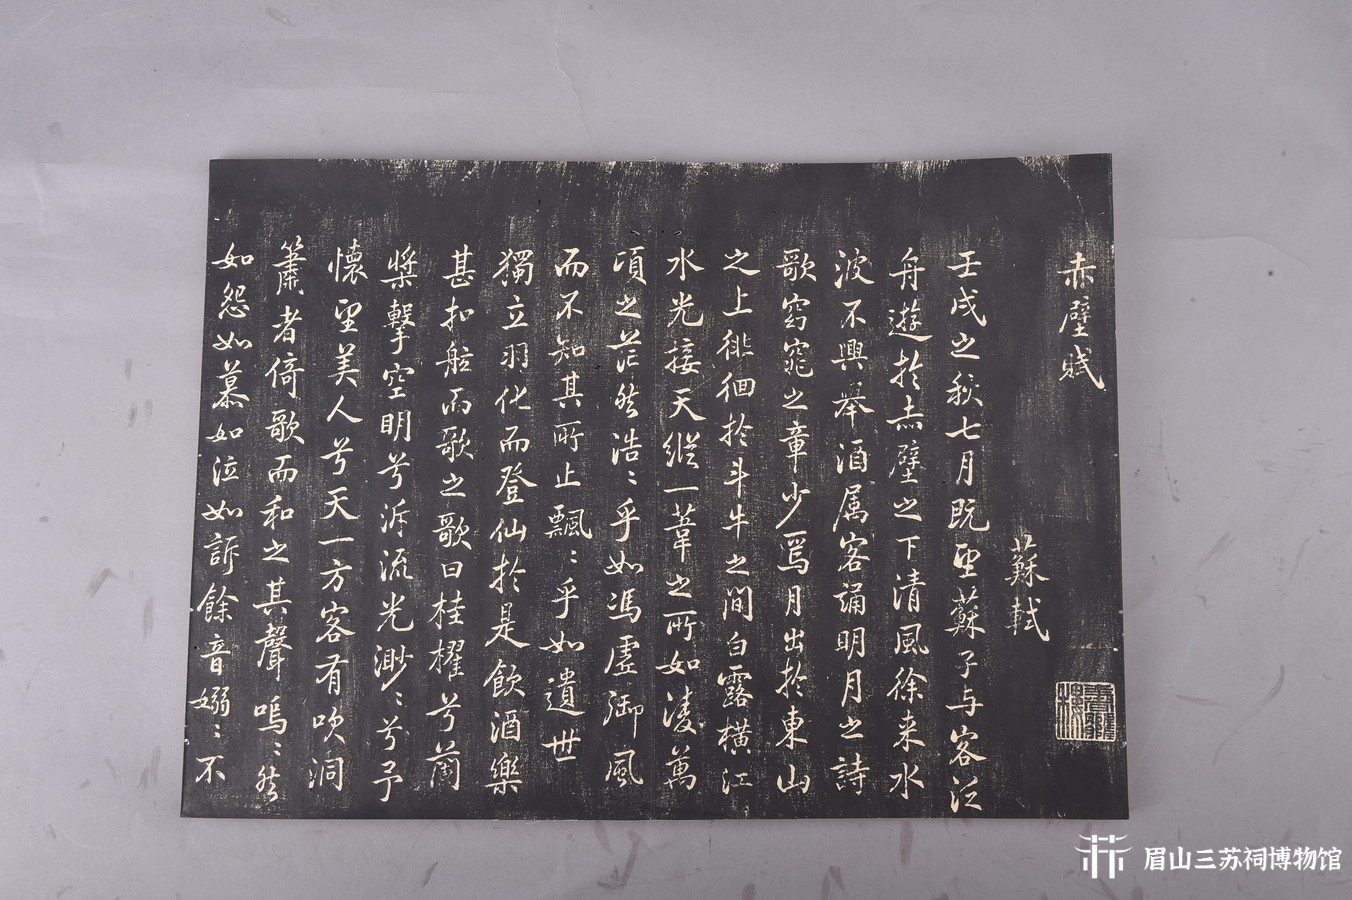 赤壁賦
蘇軾
壬戌之秋七月既望蘇子与客泛
舟遊於赤壁之下清風徐来水
波不興舉酒属客誦明月之詩
歌窈窕之章少焉月出於東山
之上徘徊於斗牛之間白露橫江
水光接天縱一葦之所如淩萬
頃之茫然浩〻乎如馮虛御風
而不知其所止飄〻乎如遺世
獨立羽化而登仙於是飲酒樂
甚扣舷而歌之歌曰桂櫂兮蘭
槳擊空明兮泝流光渺〻兮予
懷望美人兮天一方客有吹洞
簫者倚歌而和之其聲嗚〻然
如怨如慕如泣如訴餘音嫋〻不
眉山三苏祠博物馆